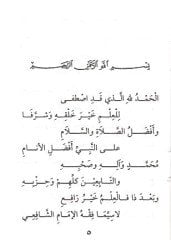 بِسْمِ اللهِ الرَّحْمَنِ الرَّحِيمِ
الْحَمْدُ لِلهِ الَّذِي قَدِ اصْطَفَى
لِلْعِلْمِ خَيْرَ خَلْقِهِ وَشَرَّفَا
وَأَفْضَلُ الصَّلَاةِ وَالسَّلَامِ
عَلَى النَّبِيِّ أَفْضَلِ الْأَنَامِ
مُحَمَّدٍ وَآلِهِ وَصَحْبِهِ
وَالتَّابِعِينَ كُلِّهِمْ وَحِزْبِهِ
وَبَعْدَ ذَا فَالْعِلْمُ خَيْرُ رَافِعِ
لَاسِيَّمَا فِقْهُ الْإِمَامِ الشَّافِعِي
٥